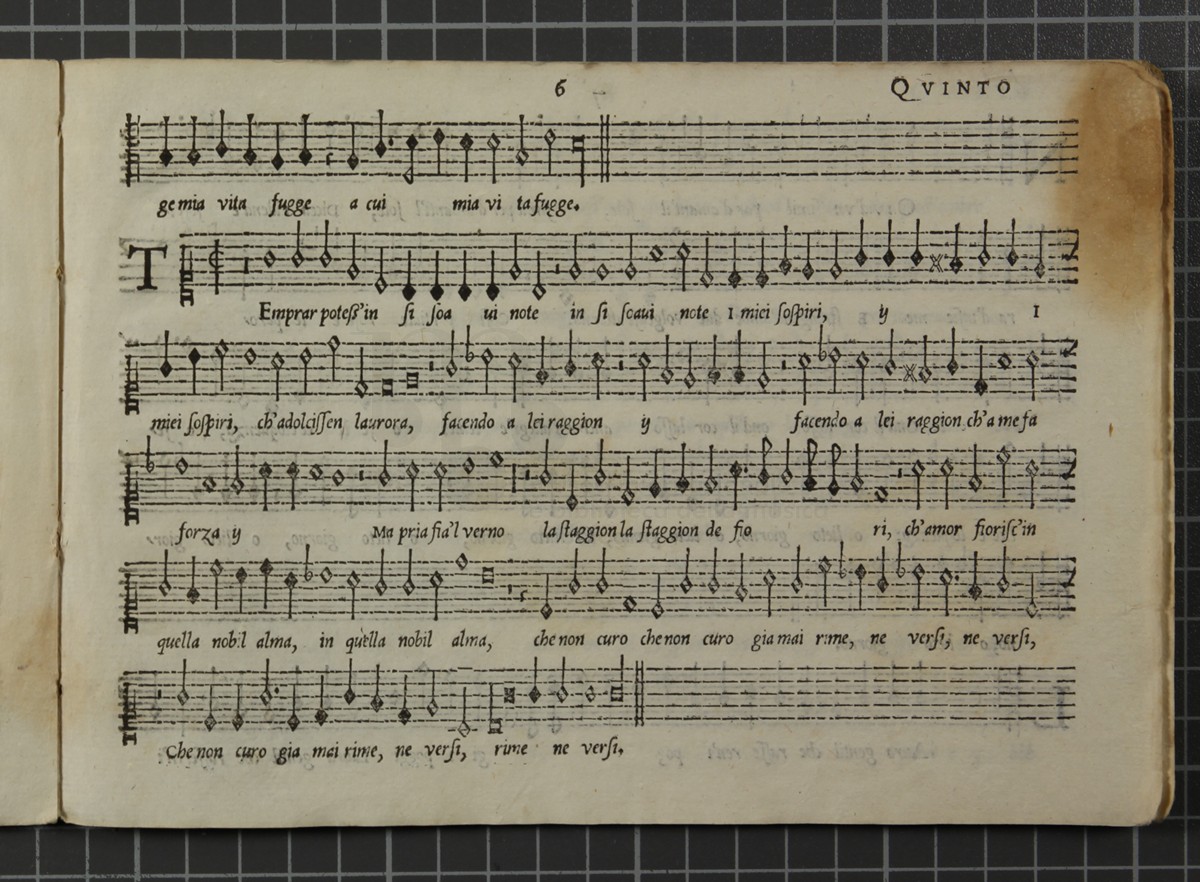 6 QVINTO
ge mia vita fugge a cui mia vi ta fugge.
T
Emprar poteſſ'in ſi ſoa ui note in ſi ſoaui note I miei ſoſpiri, ij I
miei ſoſpiri, ch'adolciſſen laurora, facendo a lei raggion ij facendo a lei raggion ch'a me fa
forza ij Ma pria fia'l verno la ſtaggion la ſtaggion de fio ri, ch'amor fioriſc'in
quella nobil alma, in quella nobil alma, che non curo che non curo gia mai rime, ne verſi, ne verſi,
Che non curo gia mai rime, ne verſi, rime ne verſi.